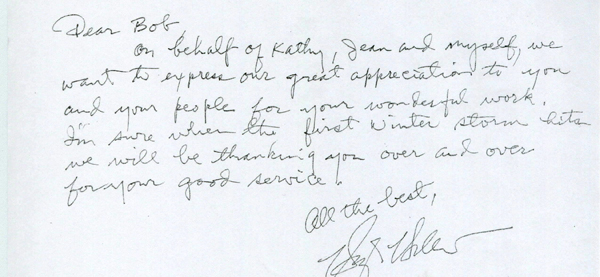 Dear Bob,
on behalf of Kathy, Jean and myself, we
want to express our great appreciation to you
and your people for your wonderful work.
I'm sure when the first winter storm hits
we will be thanking you over and over
for your good service.
All the best,